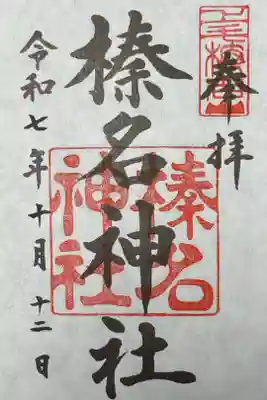 奉拝
榛名神社
榛名神社
令和七年十月十二日